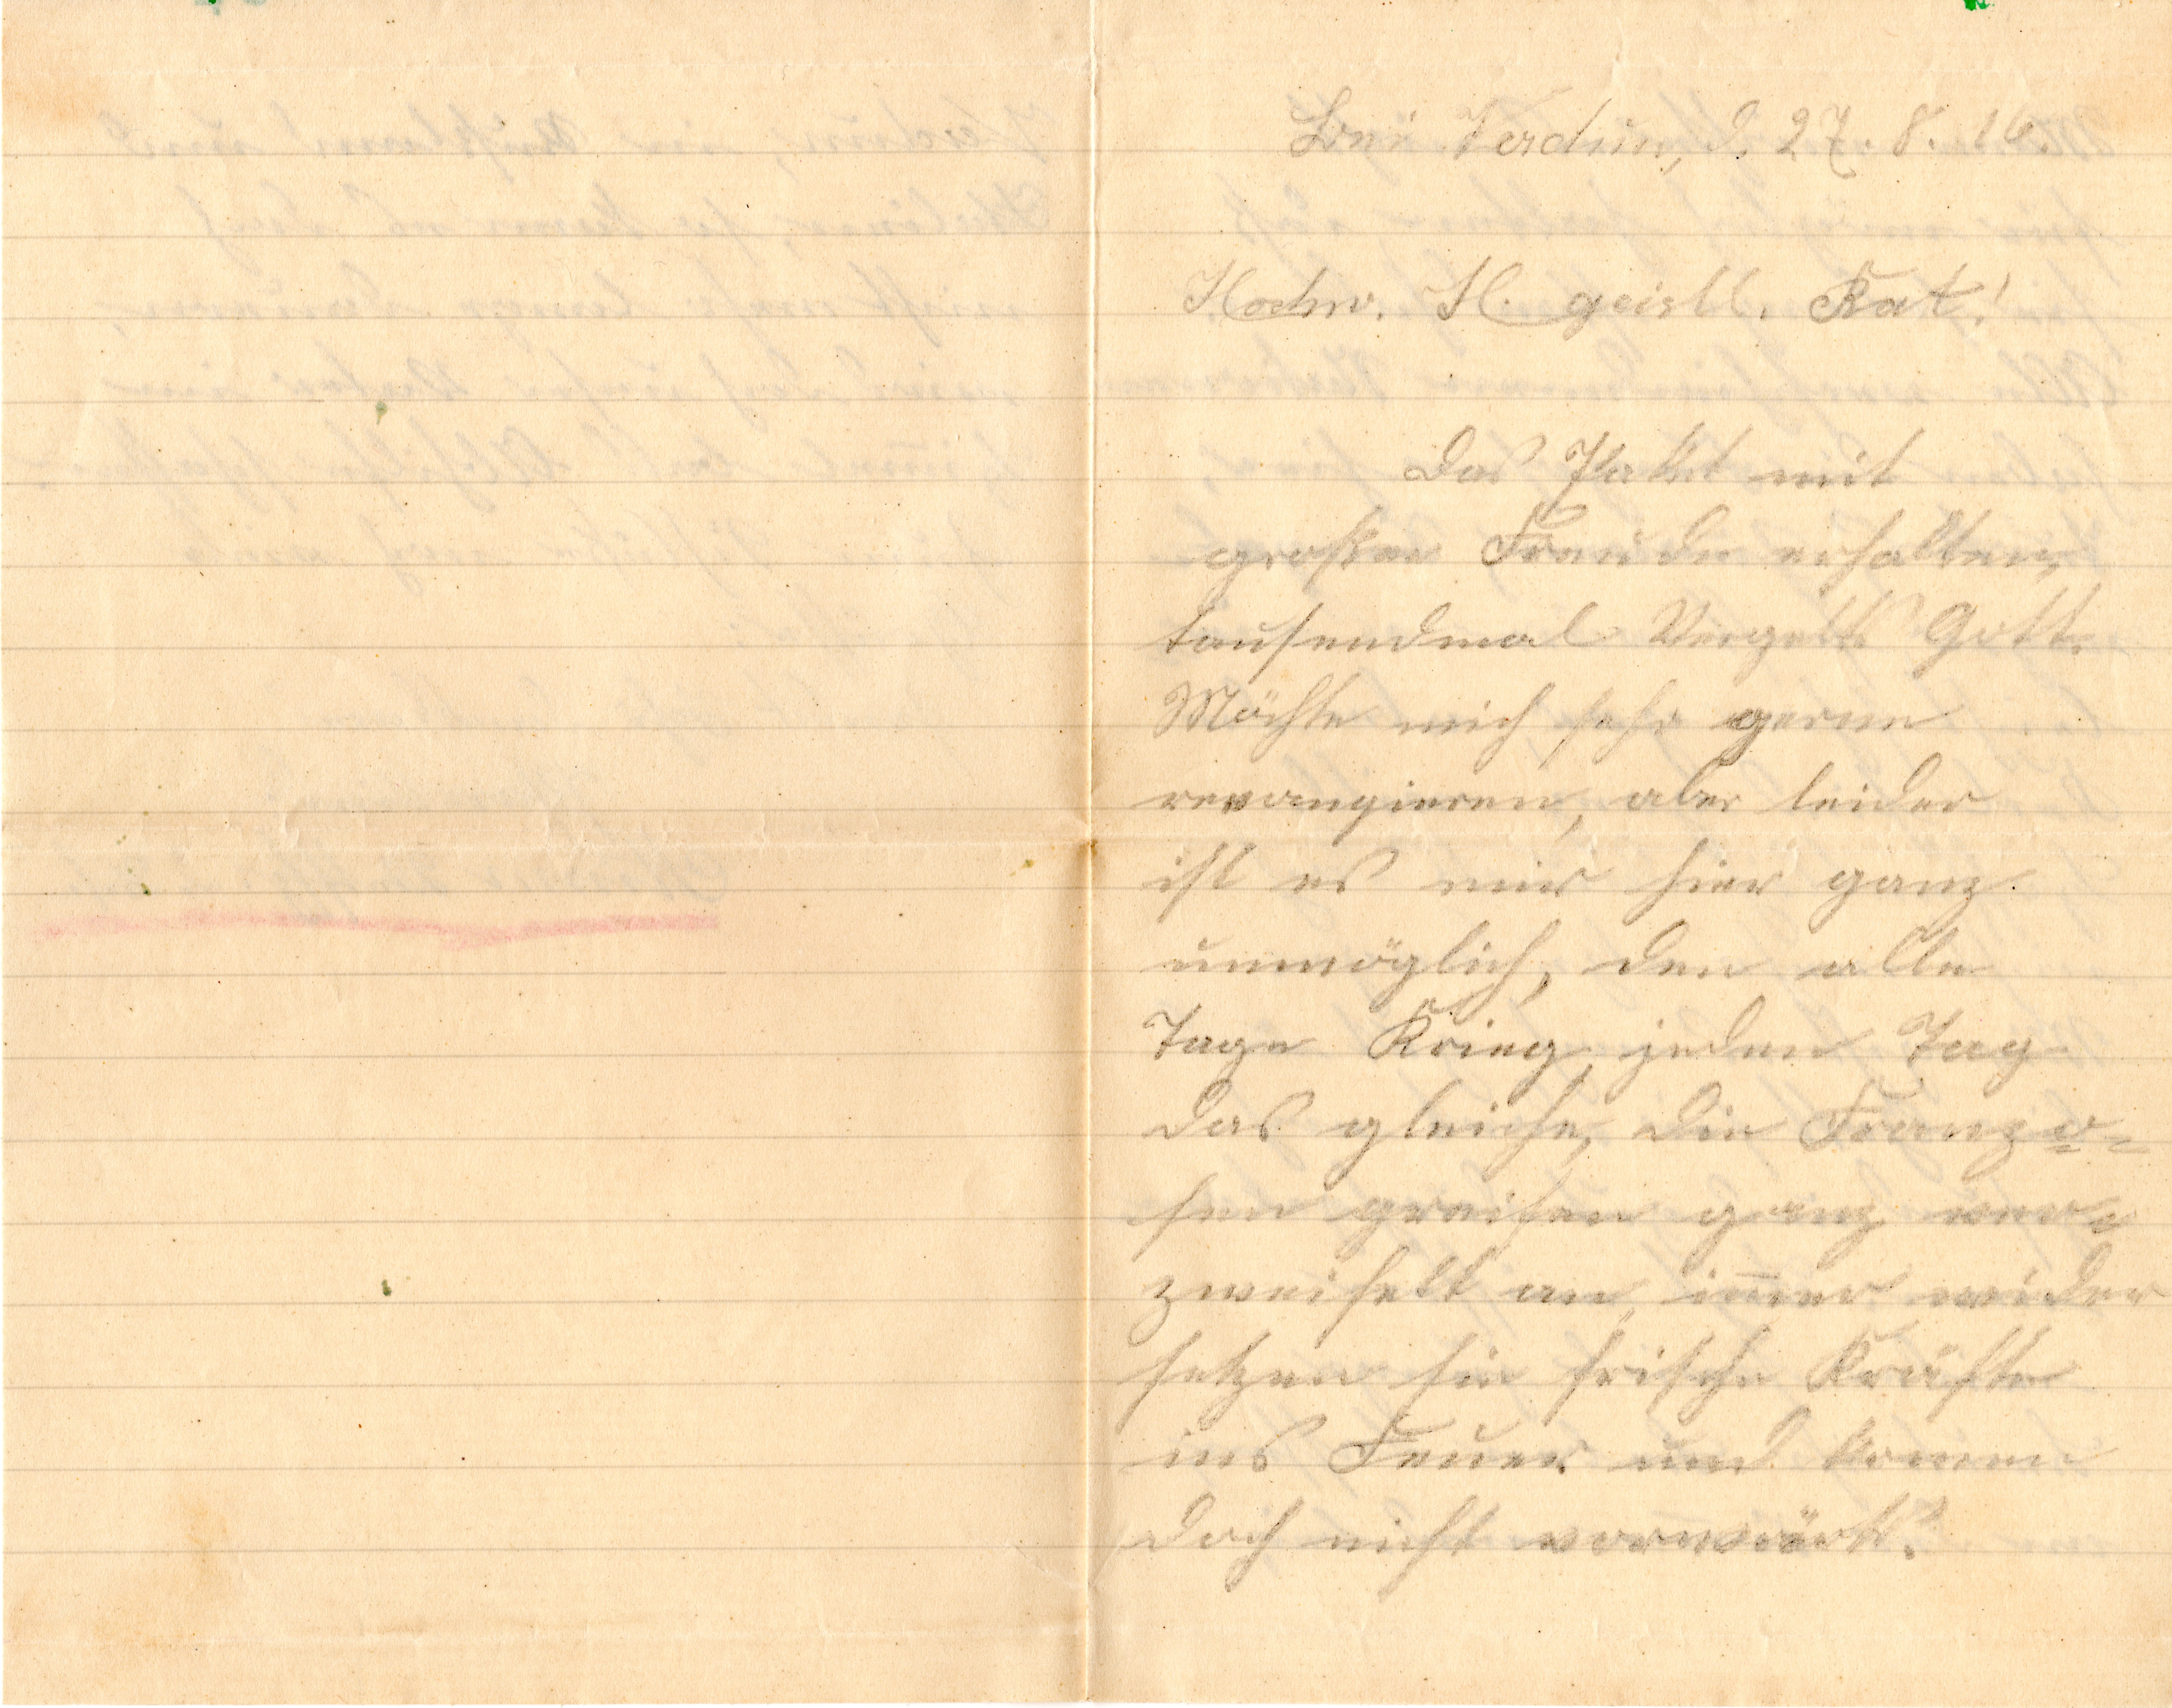 Verdun, d. 27. 8. 16.
Hochw. H. geistl. Rat!
Das Paket mit
großer Freude erhalten,
tausendmal Vergelts Gott.
Möchte mich sehr gerne
revangieren, aber leider
ist es mir hier ganz
unmöglich, den alle
Tage Krieg, jeden Tag
das gleiche, die Franzo-
sen greifen ganz ver-
zweifelt an, im̅er wider
setzen sie frische Kräfte
ins Feuer und kom̅en
doch nicht vorwärts.